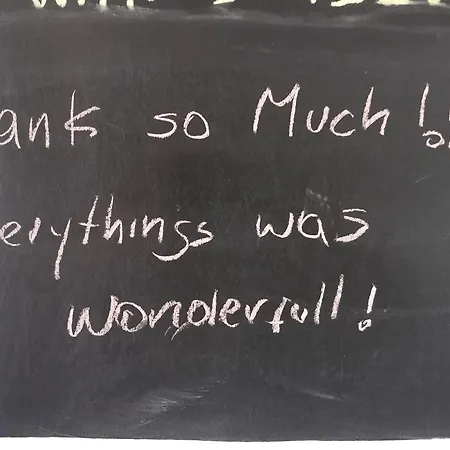 ank so Much !!
erythings was
wonderfull!